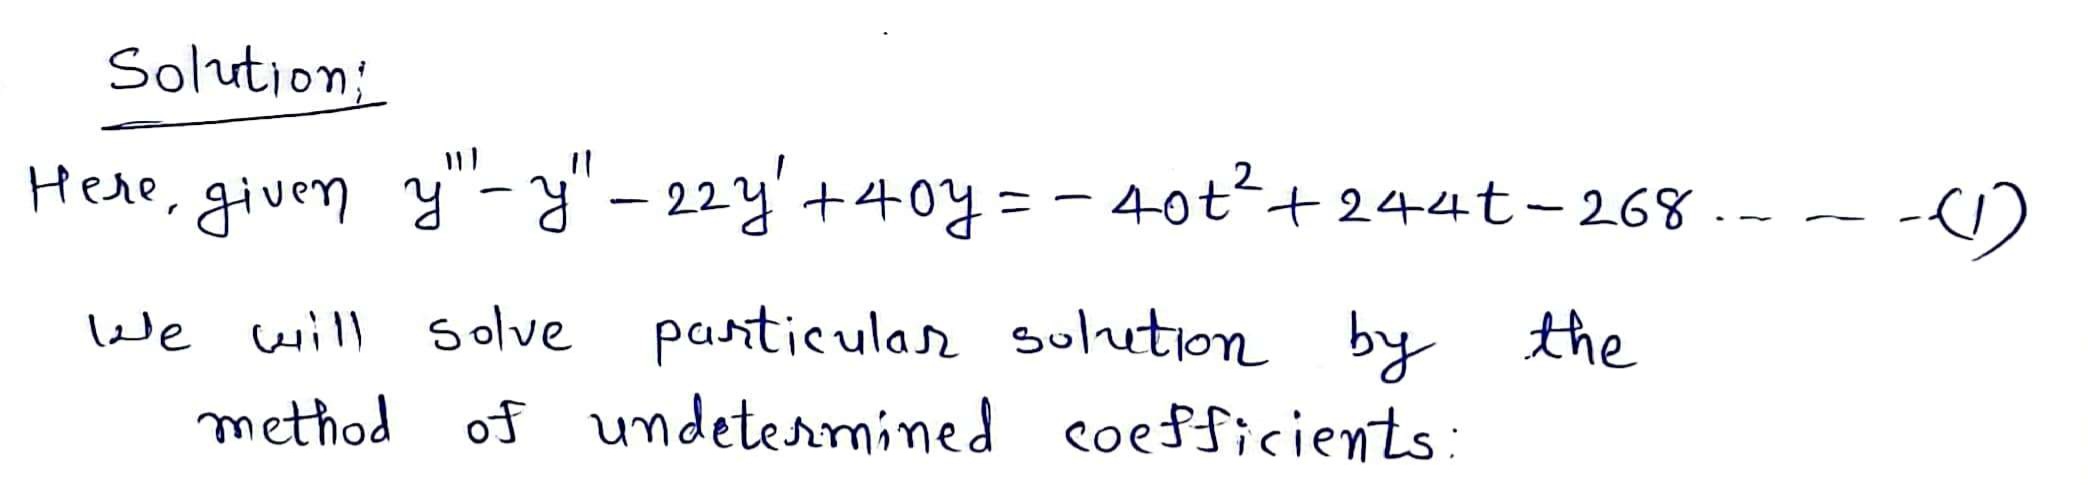 Solution:
Here, given y''' - y'' - 22y' + 40y = - 40t² + 244t - 268 .- - - -(1)
We will solve particular solution by the
method of undetermined coefficients: